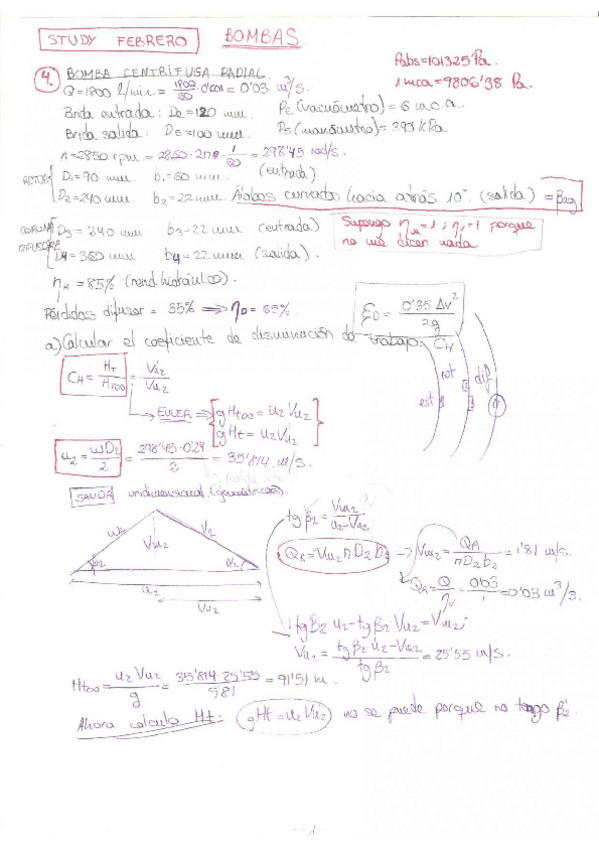 STUDY FEBRERO BOMBAS
Pabs=101325 Pa.
1 mca=9806'38 Pa.
4. BOMBA CENTRÍFUGA RADIAL.
Q=1800 l/min = 1800/60 · 0'001 = 0'03 m³/s.
Brida entrada: De=120 mm. Pe (vacuómetro)=6 m.c.a.
Brida salida: Ds=100 mm. Ps (manómetro)=393 kPa
n=2850 rpm = 2850·2π·1/60 = 298'45 rad/s.
D1=90 mm. b1=60 mm. (entrada)
D2=240 mm. b2=22 mm. Álabes curvados hacia atrás 10°. (salida) =β2
CORONA DIFUSORA
D3=240 mm b3=22 mm (entrada)
D4=360 mm b4=22 mm (salida).
Supongo ηm=1; ηv=1 porque
no me dicen nada
ηH=85% (rend. hidráulico).
Pérdidas difusor = 35% ⟹ ηD=65%
ξD = 0'35 Δv²/2g
a) Calcular el coeficiente de disminución de trabajo: CH
est rot dif
CH = Ht/Ht∞ = Vu2'/Vu2
EULER ⟹ gHt∞=u2Vu2
gHt=u2Vu2'
u2 = ωD2/2 = 298'45·0'24/2 = 35'814 m/s.
SALIDA unidimensional. (geométricos).
tgβ2 = Vm2/(u2-Vu2)
w2 V2 Vm2 β2 α2 u2 Vu2
QR=Vm2 π D2 b2 → Vm2 = QR/(πD2b2) = 1'81 m/s.
QR = Q/ηv = 0'03/1 = 0'03 m³/s.
tgβ2 u2 - tgβ2 Vu2 = Vm2;
Vu2 = (tgβ2 u2 - Vm2)/tgβ2 = 25'55 m/s.
Ht∞ = u2Vu2/g = 35'814·25'55/9'81 = 91'51 m.
Ahora calculo Ht: gHt=u2Vu2' no se puede porque no tengo β2'.